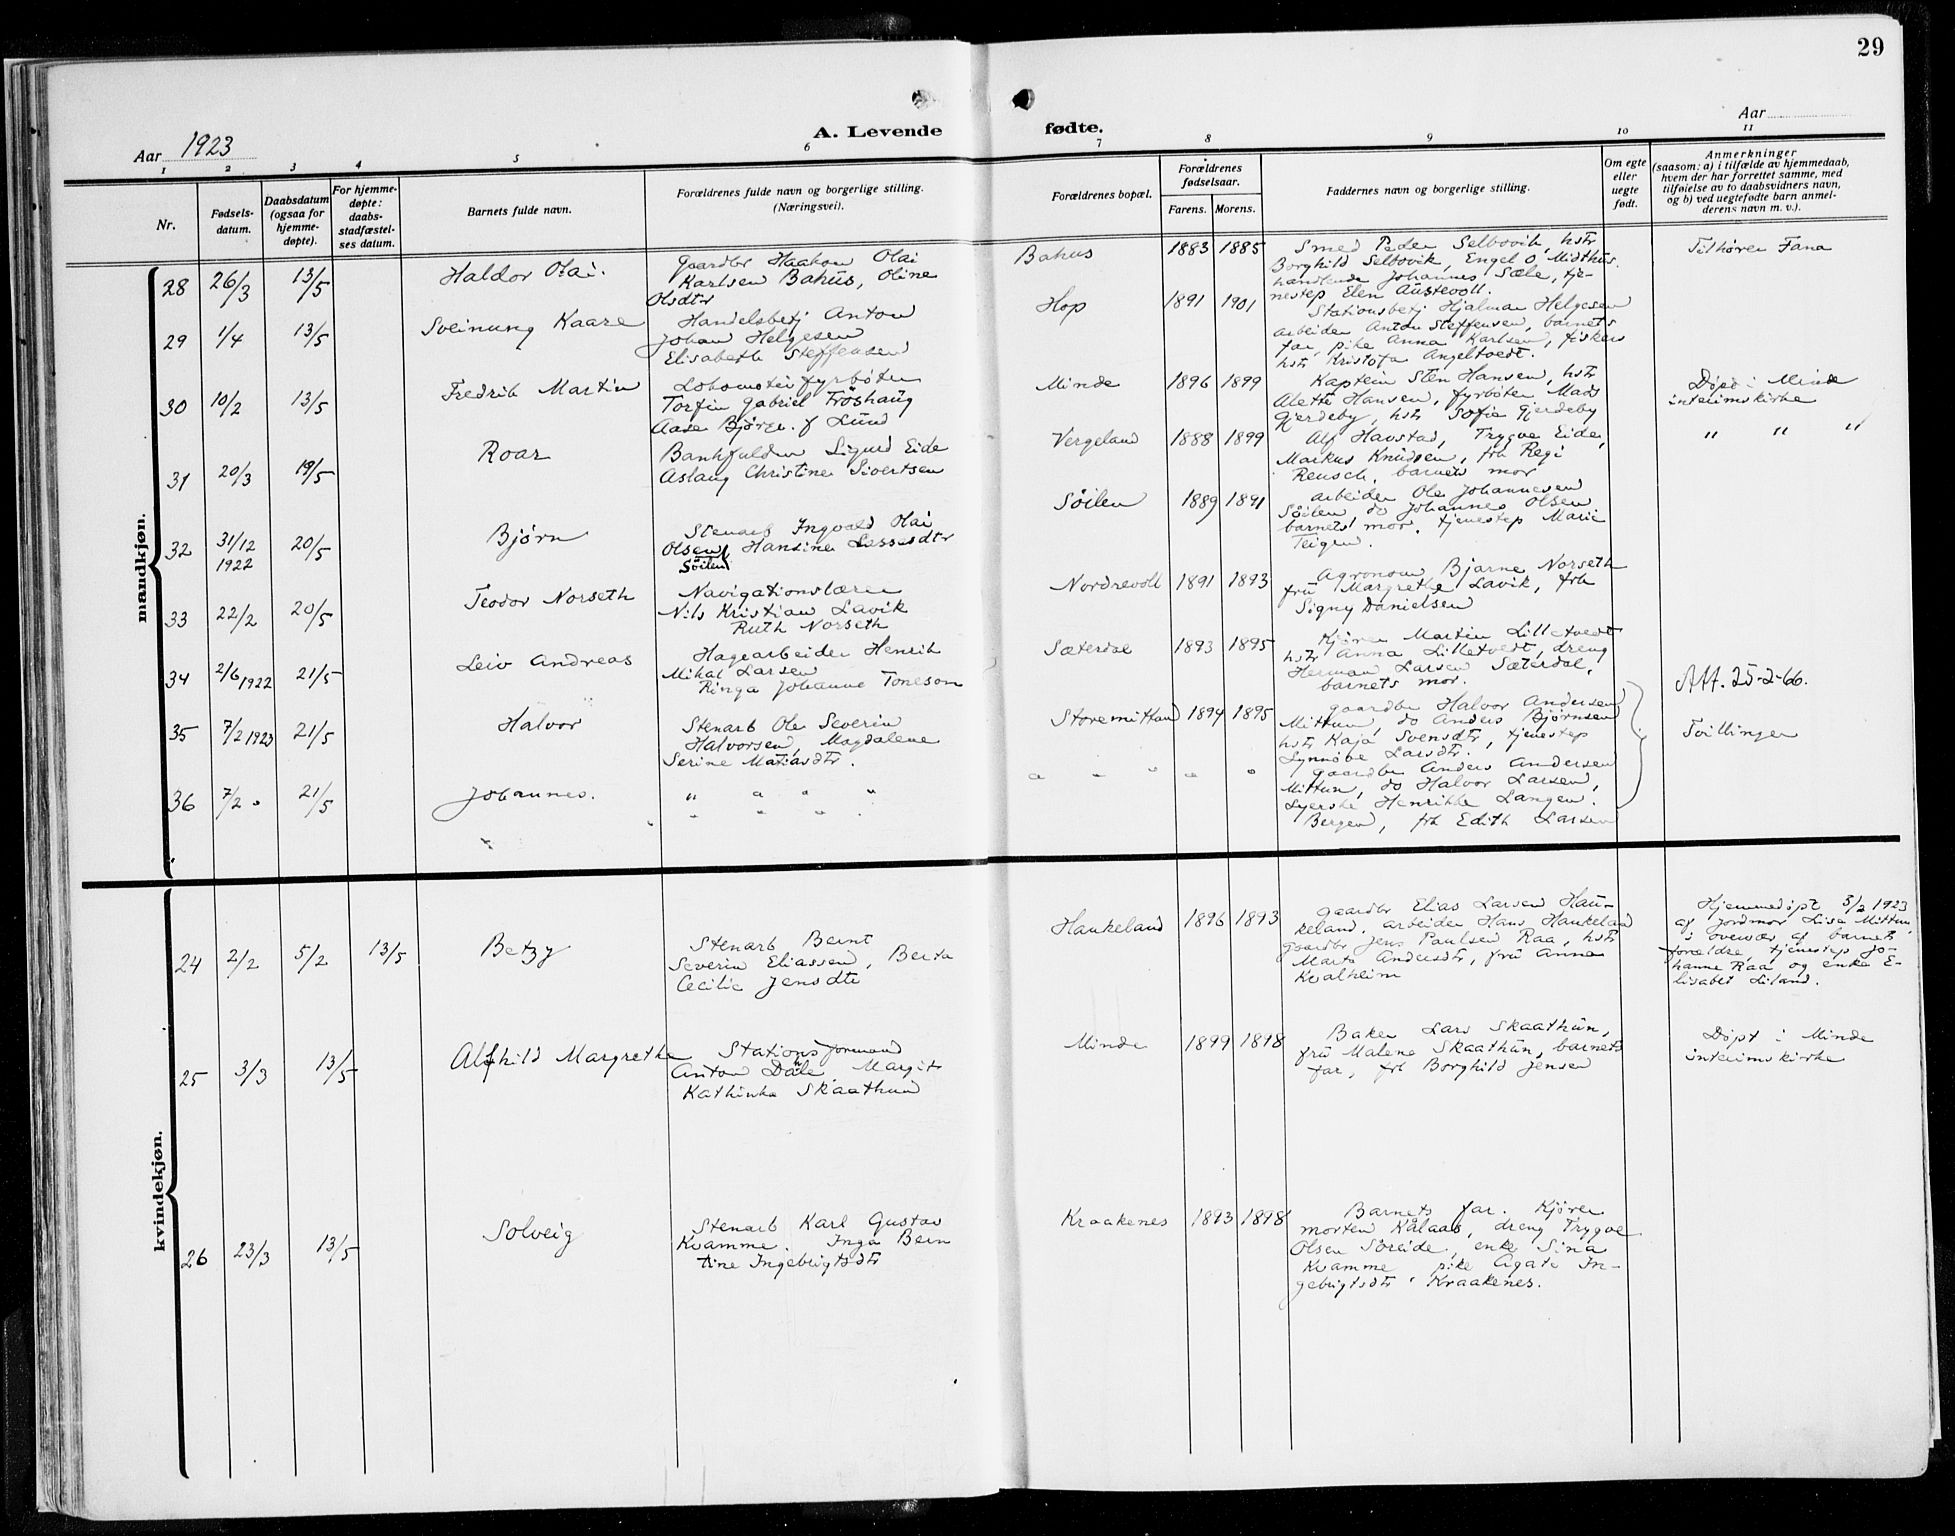 29
A. Levende fødte.
Aar 1923
Aar
1 2 3 4 5 6 7 8 9 10 11
Nr.
Fødsels-
datum.
Daabsdatum
(ogsaa for
hjemme-
døpte).
For hjemme-
døpte:
daabs-
stadfæstel-
ses datum.
Barnets fulde navn.
Forældrenes fulde navn og borgerlige stilling.
(Næringsvei).
Forældrenes bopæl.
Forældrenes
fødselsaar.
Farens. Morens.
Faddernes navn og borgerlige stilling.
Om egte
eller
uegte
født.
Anmerkninger
(saasom: a) i tilfælde av hjemmedaab,
hvem der har forrettet samme, med
tilføielse av to daabsvidners navn,
og b) ved uegtefødte barn anmel-
derens navn m. v.).
mandkjøn.
28 26/3 13/5 Haldor Olai.
Gaardbr Haakon Olai
Karlsen Bahus, Oline
Olsdtr
Bahus 1883 1885
Smed Peder Selbovik, hstr
Borghild Selbovik, Engel O. Midthus.
handlende Johannes Sæle, tje-
nestep Elen Austevoll.
Tilhører Fana
29 1/4 13/5 Sveinung Kaare
Handelsbetj Anton
Johan Helgesen
Elisabeth Steffensen
Hop 1891 1901
Stationsbetj Hjalmar Helgesen
arbeider Anton Steffensen, barnets
far, pike Anna Karlsen, fiskers
hstr Kristofa Angeltvedt.
30 10/2 13/5 Fredrik Martin
Lokomotivfyrbøter
Torfin Gabriel Frøshaug
Aase Bjørg. f Lund
Minde 1896 1899
Kaptein Sten Hansen, hstr
Alette Hansen, fyrbøter Mads
Gjerdeby, hstr Sofie Gjerdeby
Døpt i Minde
interimskirke
31 20/3 19/5 Roar
Banhfuldm Sigurd Eide
Aslaug Christine Sivertsen
Vergeland 1888 1899
Alf Havstad, Trygve Eide,
Markus Knudsen, frk Regi
Reusch, barnets mor
" " "
32 31/12
1922 20/5 Bjørn
Stenarb Ingvald Olai
Olsen, Hansine Lassesdtr
Søilen
Søilen 1889 1891
arbeider Ole Johannesen
Søilen, do Johannes Olsen
barnets mor, tjenestep Marie
Teigen.
33 22/2 20/5 Teodor Norseth
Navigationslærer
Nils Kristian Lavik
Ruth Norseth
Nordrevoll 1891 1893
Agronom Bjarne Norseth
fru Margrethe Lavik, frk
Signy Danielsen
34 2/6 1922 21/5 Leiv Andreas
Hagearbeider Henrik
Mikal Larsen
Ringa Johanne Toneson
Sæterdal 1893 1895
Kjører Martin Lilletvedt
hstr Anna Lilletvedt, dreng
Herman Larsen Sæterdal,
barnets mor.
Att. 25-2-66.
35 7/2 1923 21/5 Halvor
Stenarb Ole Severin
Halvorsen, Magdalene
Serine Matiasdtr.
Storemittun 1894 1895
gaardbr Halvor Andersen
Mittun, do Anders Bjørnsen
hstr Kaja Svensdtr, tjenestep
Synnøve Larsdtr.
Tvillinger
36 7/2 " 21/5 Johannes.
" " " "
" " " "
" " " " "
gaardbr Anders Andersen
Mittun, do Halvor Larsen,
Syerske Henrikke Langen.
Bergen, frk Edith Larsen
kvindekjøn.
24 2/2 5/2 13/5 Betzy
Stenarb Bernt
Severin Eliassen, Berta
Cecilie Jensdtr
Haukeland 1896 1893
gaardbr Elias Larsen Hau-
keland, arbeider Hans Haukeland
gaardbr Jens Paulsen Raa, hstr
Marta Andersdtr, fru Anna
Kvalheim
Hjemmedøpt 5/2 1923
af jordmor Lisa Mittun,
i overvær af barnets
forældre, tjenestep Jo-
hanne Raa og enke E-
lisabet Liland.
25 3/3 13/5 Alfhild Margrethe
Stationsformand
Anton Dale Margit
Kathinka Skaathun
Minde 1899 1898
Baker Lars Skaathun,
fru Malene Skaathun, barnets
far, frk Borghild Jensen
Døpt i Minde
interimskirke
26 23/3 13/5 Solveig
Stenarb Karl Gustav
Kvamme. Inga Bern
tine Ingebrigtsdtr
Kraakenes 1893 1898
Barnets far. Kjører
Morten Kålaas, dreng Trygve
Olsen Søreide, enke Sina
Kvamme pike Agate In-
gebrigtsdtr Kraakenes.